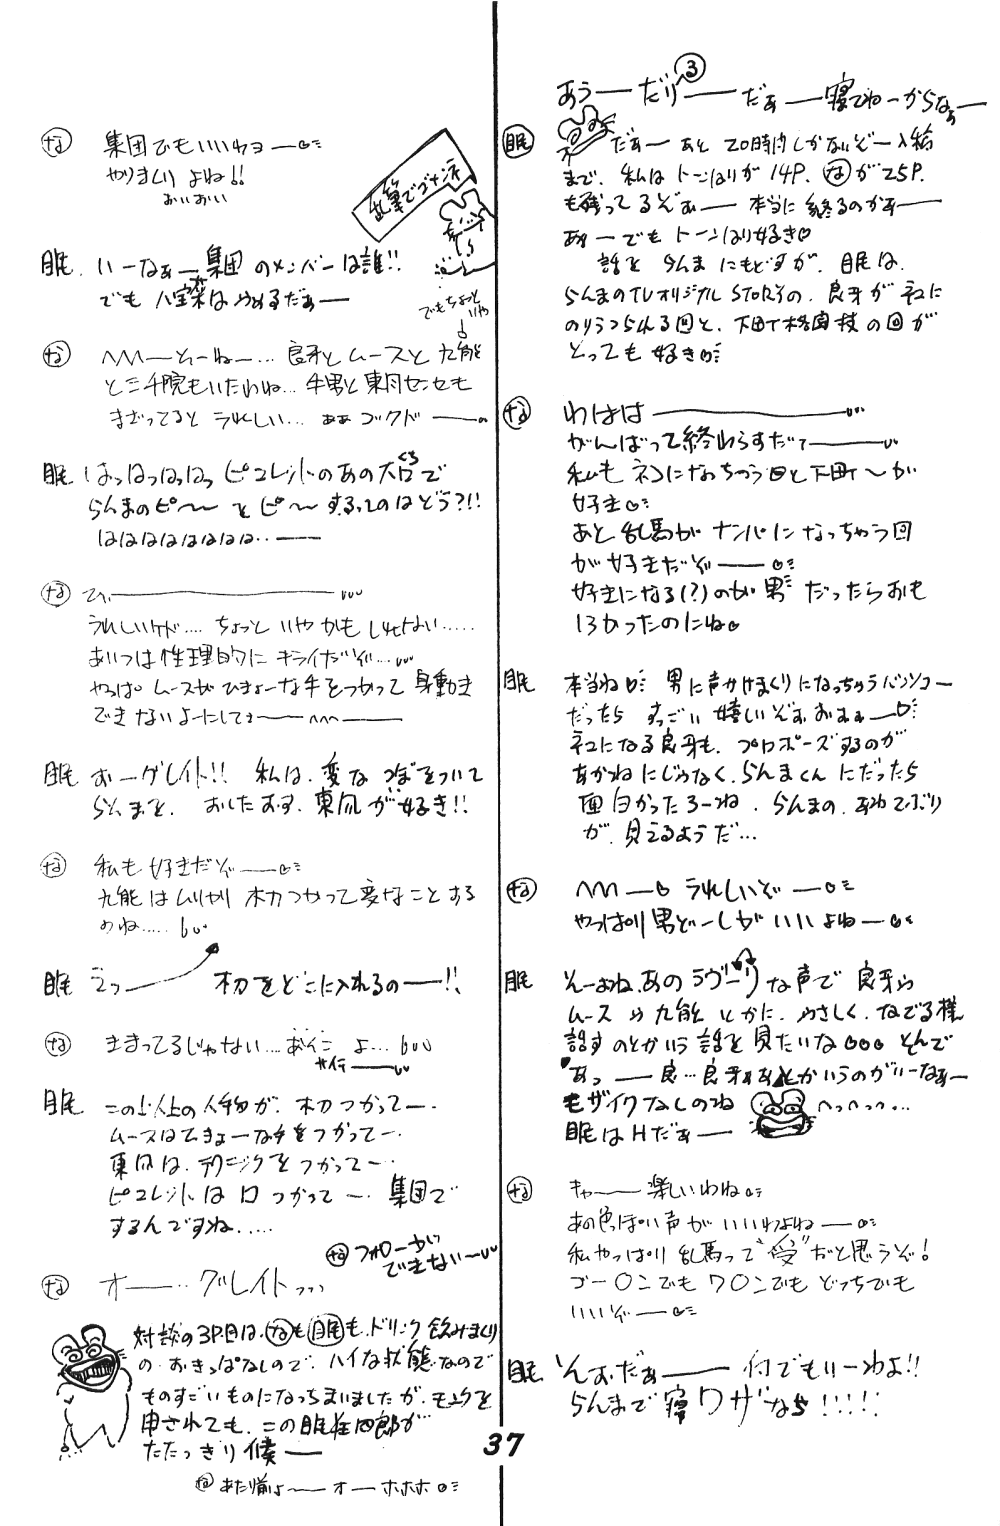 ③
あぅーーだりーーだぁー寝てねーからなぁー
眠 だぁーあと20時間しかないぞー入稿
まで、私はトーンはりが14P、なが25P
も残ってるぞぉー本当に終るのかぁー
あぁーでもトーンはり好き♡
話をらんまにもどすが、眠は、
らんまのTVオリジナルSTORYの、良牙がネコに
のりうつられる回と、下町格闘技の回が
とっても好き♡
な わははーーー
がんばって終わらすだァーーー
私もネコになっちゃう回と下町〜が
好き♡
あと乱馬がナンパになっちゃう回
が好きだぞー♡
好きになる(?)のが男だったらおも
しろかったのにね♡
眠 本当ね♡男に声かけまくりになっちゃうバンソコー
だったらすっごい嬉しいぞぉおぉぉー♡
ネコになる良牙も、プロポーズするのが
あかねにじゃなく、らんまくんにだったら
面白かったろーね、らんまの、あわてぶり
が、見えるようだ…
な へへへー♡うれしいぞー♡
やっぱり男どーしがいいよねー♡
眠 そーよね、あのラヴリーな声で良牙や
ムースや九能とかに、やさしく、なでる様
話すのとかいう話を見たいな○○○そんで
"あっーー良…良牙ぁあとかいうのがいーなぁー
モザイクなしのね へっへっへっ…
眠はHだぁー
な キャーー楽しいわね♡
あの色っぽい声がいいわよねー♡
私やっぱり乱馬って"受"だと思うぞ!
ゴー○ンでもワ○ンでもどっちでも
いいぞー♡
眠 そんぉ、だぁーーー何でもいーわよ!!
らんまで寝ワザなら!!!!!
な 集団でもいいわヨー♡
やりましょうよね!!
おいおい
乱筆でゴメンネ
眠 いーなぁー集団のメンバーは誰!!
でも八宝菜はやめるだぁー
でもちょっといや
な へへへーそーねー…良牙とムースと九能
と三千院もいたわね…牛男と東風センセも
まざってるとうれしい…ああゴックドーー
眠 はっはっはっはっピコレットのあの大口で
らんまのピ〜〜をピ〜〜するってのはどう?!!
はははははははは…ーー
な ひぃーーーーー
うれしいけど….ちょっといやかもしれない.....
あいつは性理的にキライだぞ…
やっぱムースがひきょーな手をつかって身動き
できないよーにして♡ーーへへへーー
眠 おーグレイト!!私は、変なつぼをついて
らんまを、おしたおす、東風が好き!!
な 私も好きだぞー♡
九能はムリヤリ木刀つかって変なことする
のね.....
眠 えっーー木刀をどこに入れるのーー!!
な きまってるじゃない…あそこよ…
眠 この以上の人物が、木刀つかってー.
ムースはひきょーな手をつかってー.
東風は、テクニックをつかってー.
ピコレットは口つかってー、集団で
するんですね.....
な フォローが
できないー
な オーー…グレイト,,,
対談の3P目は、なも眠も、ドリンク飲みまくり
の、おきっぱなしので、ハイな状態なので
ものすごいものになっちまいましたが、もんくを
申されても、この眠狂四郎が
たたっきり候ー
な あたり前よーオーホホホ♡
37